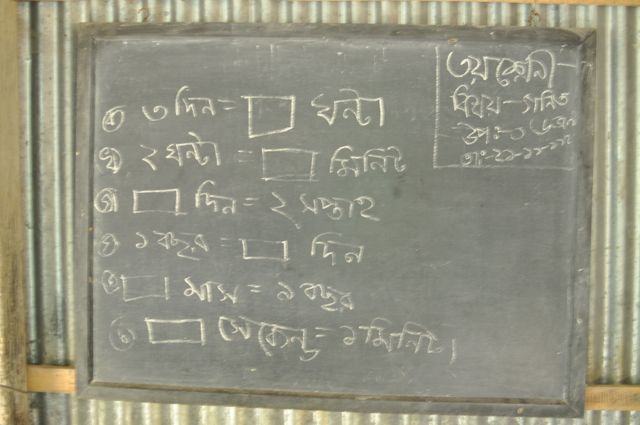 ৩য় শ্রেনী
বিষয়-গনিত
ক ৩ দিন = ঘন্টা
খ ২ ঘন্টা = মিনিট
গ দিন = ২ সপ্তাহ
ঘ ১ বছর = দিন
ঙ মাস = ১ বছর
চ সেকেন্ড = ১ মিনিট।